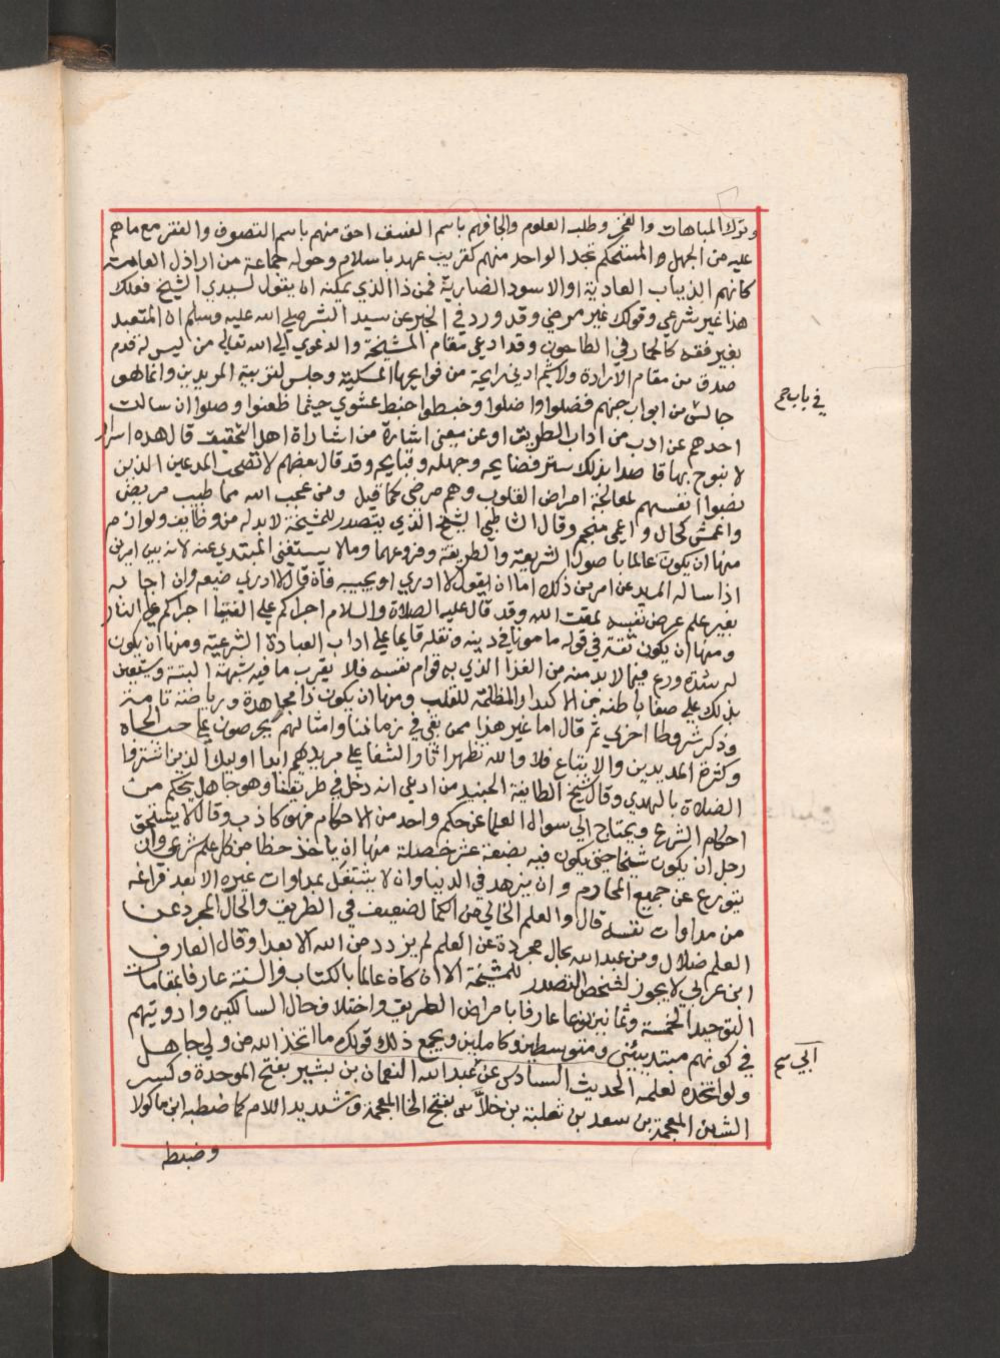 وترك المباهات والفخر وطلب العلوم والجافهم باسم الفسق احق منهم باسم التصوف والفقر مع ماهم
عليه من الجهل والمستحكم تجد الواحد منهم كقريب عهد باسلام وحوله جماعة من اراذل العامة
كانهم الذياب العادية او الاسود الضارية فمن ذا الذي يمكنه ان يقول لسيدي الشيخ فعلك
هذا غير شرعي وقولك غير مرضي وقد ورد في الخبر عن سيد البشر صلي الله عليه وسلم ان المتعبد
بغير فقه كالحمار في الطاحون وقد ادعي مقام المشيخة والدعوي الي الله تعالي من ليس له قدم
صدق من مقام الارادة ولا شم ادني رايحة من فوايحها المسكية وجلس لتربية المريدين وانما هو
جالس من ابواب جهنم فضلوا واضلوا وخبطوا خبط عشوي حيثما ظعنوا وصلوا ان سالت
احدهم عن ادب من اداب الطريق او عن معني اشارة من اشاراة اهل التحقيق قال هذه اسرار
لا نبوح بها قاصدا بذلك ستر فضايحه وجهله وقبايحه وقد قال بعضهم لا تصحب المدعين الذين
نصبوا انفسهم لمعالجة امراض القلوب وهم مرضي كما قيل ومن عجب الله مما طبيب مريض
واعمش كحال واعمي منجم وقال الشاطبي الشيخ الذي يتصدر للمشيخة لا بد له من وظايف ولوازم
منها ان يكون عالما باصول الشريعة والطريقة وفروعهما ومالا يستغني المبتدي عنه لانه بين امرين
اذا ساله المريد عن امر من ذلك اما ان يقول لا ادري او يجيبه فان قال لا ادري ضيعه وان اجابه
بغير علم عرض نفسه لمقت الله وقد قال عليه الصلاة والسلام اجراكم علي الفتيا اجراكم علي النار
ومنها ان يكون ثقة في قوله مامونا في دينه ونقله قايما علي اداب العبادة الشرعية ومنها ان يكون
له شدة ورع فيما لا بد منه من الغذا الذي به قوام نفسه فلا يقرب ما فيه شبهة البتة ويستعين
بذلك علي صفا باطنه من الاكدار المظلمة للقلب ومنها ان يكون ذا مجاهدة ورياضة تامة
وذكر شروطا اخري ثم قال اما غير هذا ممن بقي في زماننا وامثالهم يحرصون علي حب الجاه
وكثرة المريدين والاتباع فلا والله تظهر اثار الشفا علي مريديهم ابدا اوليك الذين اشتروا
الضلالة بالهدي وقال شيخ الطايفة الجنيد من ادعي انه دخل في طريقتنا وهو جاهل بحكم من
احكام الشرع ويحتاج الي سوال العلما عن حكم واحد من الاحكام فهو كاذب وقال لا يستحق
رجل ان يكون شيخا حتي يكون فيه بضعة عشر خصلة منها ان ياخذ حظا من كل علم شرعي وان
يتورع عن جميع المحارم وان يزهد في الدنيا وان لا يشتغل بمداوات غيره الا بعد فراغه
من مداوات نفسه قال والعلم الخالي من الكمال ضعيف في الطريق والحال المجرد عن
العلم ضلال ومن عبد الله بحال مجردة عن العلم لم يزدد من الله الا بعدا وقال العارف
ابن عربي لا يجوز لشخص التصدر للمشيخة الا ان كان عالما بالكتاب والسنة عارفا بمقامات
التوحيد الخمسة وثمانين نوعا عارفا بامراض الطريق واختلاف حال السالكين وادويتهم
في كونهم مبتديين ومتوسطين وكاملين ويجمع ذلك قولك ما اتخذ الله من ولي جاهل
ولو اتخذه لعلمه الحديث السادس عن عبد الله النعمان بن بشير بفتح الموحدة وكسر
الشين المعجمة بن سعد بن ثعلبة بن خلاس بفتح الخا المعجمة وتشديد اللام كما ضبطه ابن ماكولا
وضبطه
في باب ح